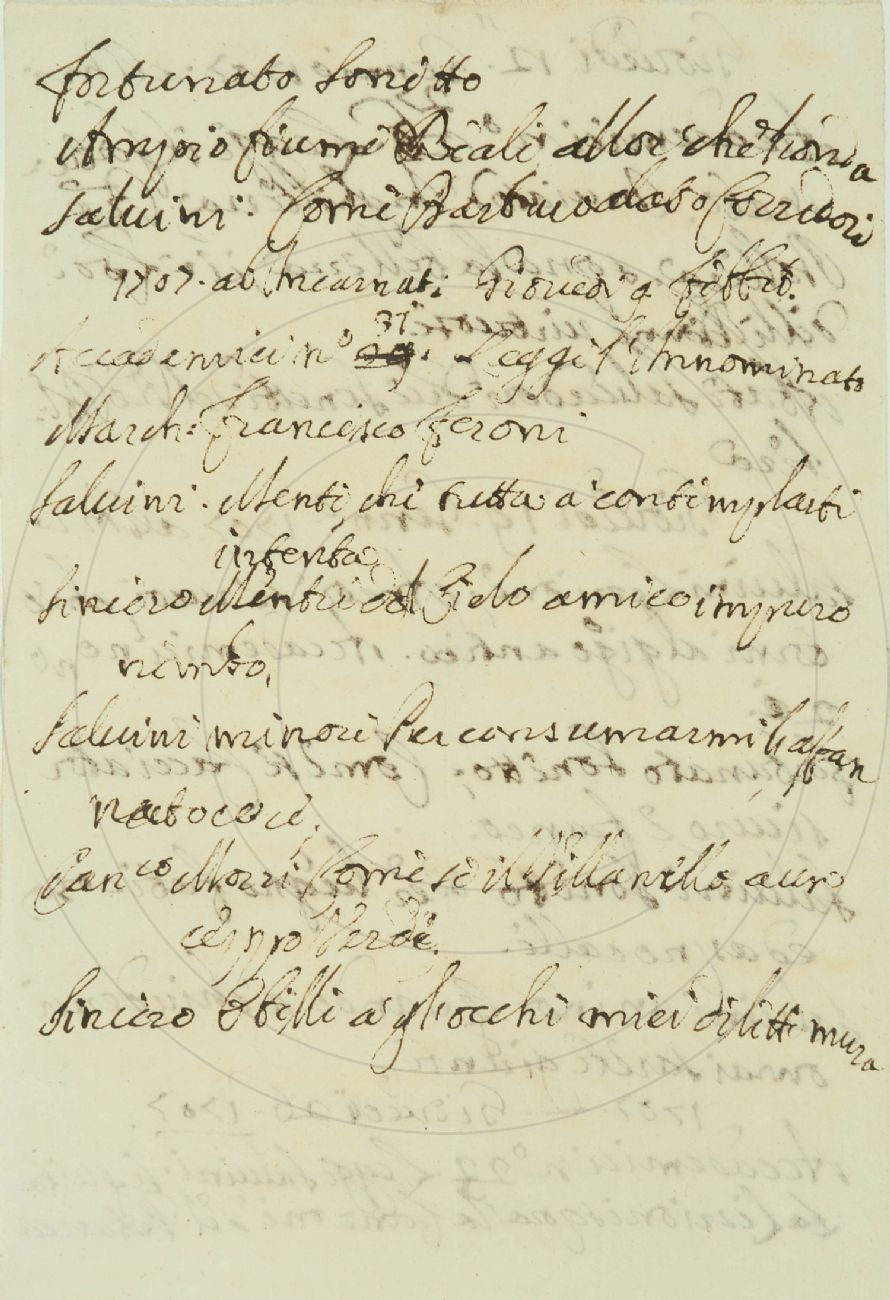 Fortunato Sonetto
Ampio fiume Reale allor che l'onda
Salvini. Come Pastuo dato Corridori
1707. ab Incarnat: Giovedì 9 Febbr.
Accademici n.o 31 Leggé l'Innominato
March: Francesco Feroni
Salvini. Mente, che tutta a contemplarti
intenta,
Sincero Mentre del Zelo amico impuro
vento,
Salvini minore Per consumarmi l'affan
nato core,
Can.co Mozzi Come se il Villanello a un
ceppo Verde.
Sincero O belle a gl'occhi miei dilette mura